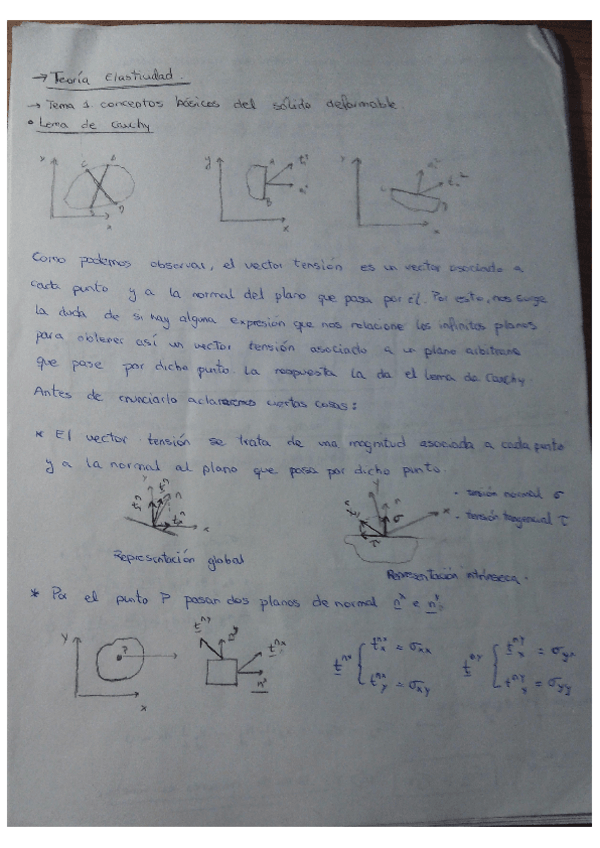 → Teoría elasticidad.
→ Tema 1 conceptos básicos del sólido deformable.
• Lema de Cauchy
y x C A B D
y x A B
y x C D
Como podemos observar, el vector tensión es un vector asociado a
cada punto y a la normal del plano que pasa por él. Por esto, nos surge
la duda de si hay alguna expresión que nos relacione los infinitos planos
para obtener así un vector tensión asociado a un plano arbitrario
que pase por dicho punto. La respuesta la da el Lema de Cauchy.
Antes de enunciarlo aclaremos ciertas cosas:
* El vector tensión se trata de una magnitud asociada a cada punto
y a la normal al plano que pasa por dicho punto.
y x n
y x σ τ
- tensión normal σ
- tensión tangencial τ
Representación global
Representación intrínseca.
* Por el punto P pasan dos planos de normal n^x e n^y:
y P x
t^ny n^y t^nx n^x
t^nx { t^nx_x = σxx
t^nx_y = σxy
t^ny { t^ny_x = σyx
t^ny_x = σyy